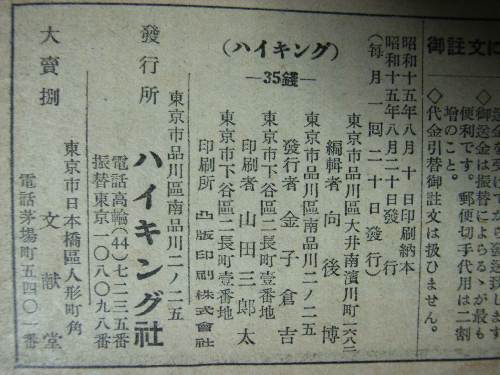 御註文に
御送金は振替によらるゝが最も
便利です。郵便切手代用は二割
増のこと。
◇代金引替御註文は扱ひません。
(ハイキング)
―35錢―
昭和十五年八月十日印刷納本
昭和十五年八月二十日發行
(每月一回二十日發行)
東京市品川區大井南濱川町一六八二
編輯者 向後博
東京市品川區南品川二ノ二五
發行者 金子倉吉
東京市下谷區二長町壹番地
印刷者 山田三郎太
東京市下谷區二長町壹番地
印刷所 凸版印刷株式會社
東京市品川區南品川二ノ二五
發行所 ハイキング社
電話高輪(44)七二三五番
振替東京一〇八〇九八番
東京市日本橋區人形町角
大賣捌 文獻堂
電話茅場町五四〇一番